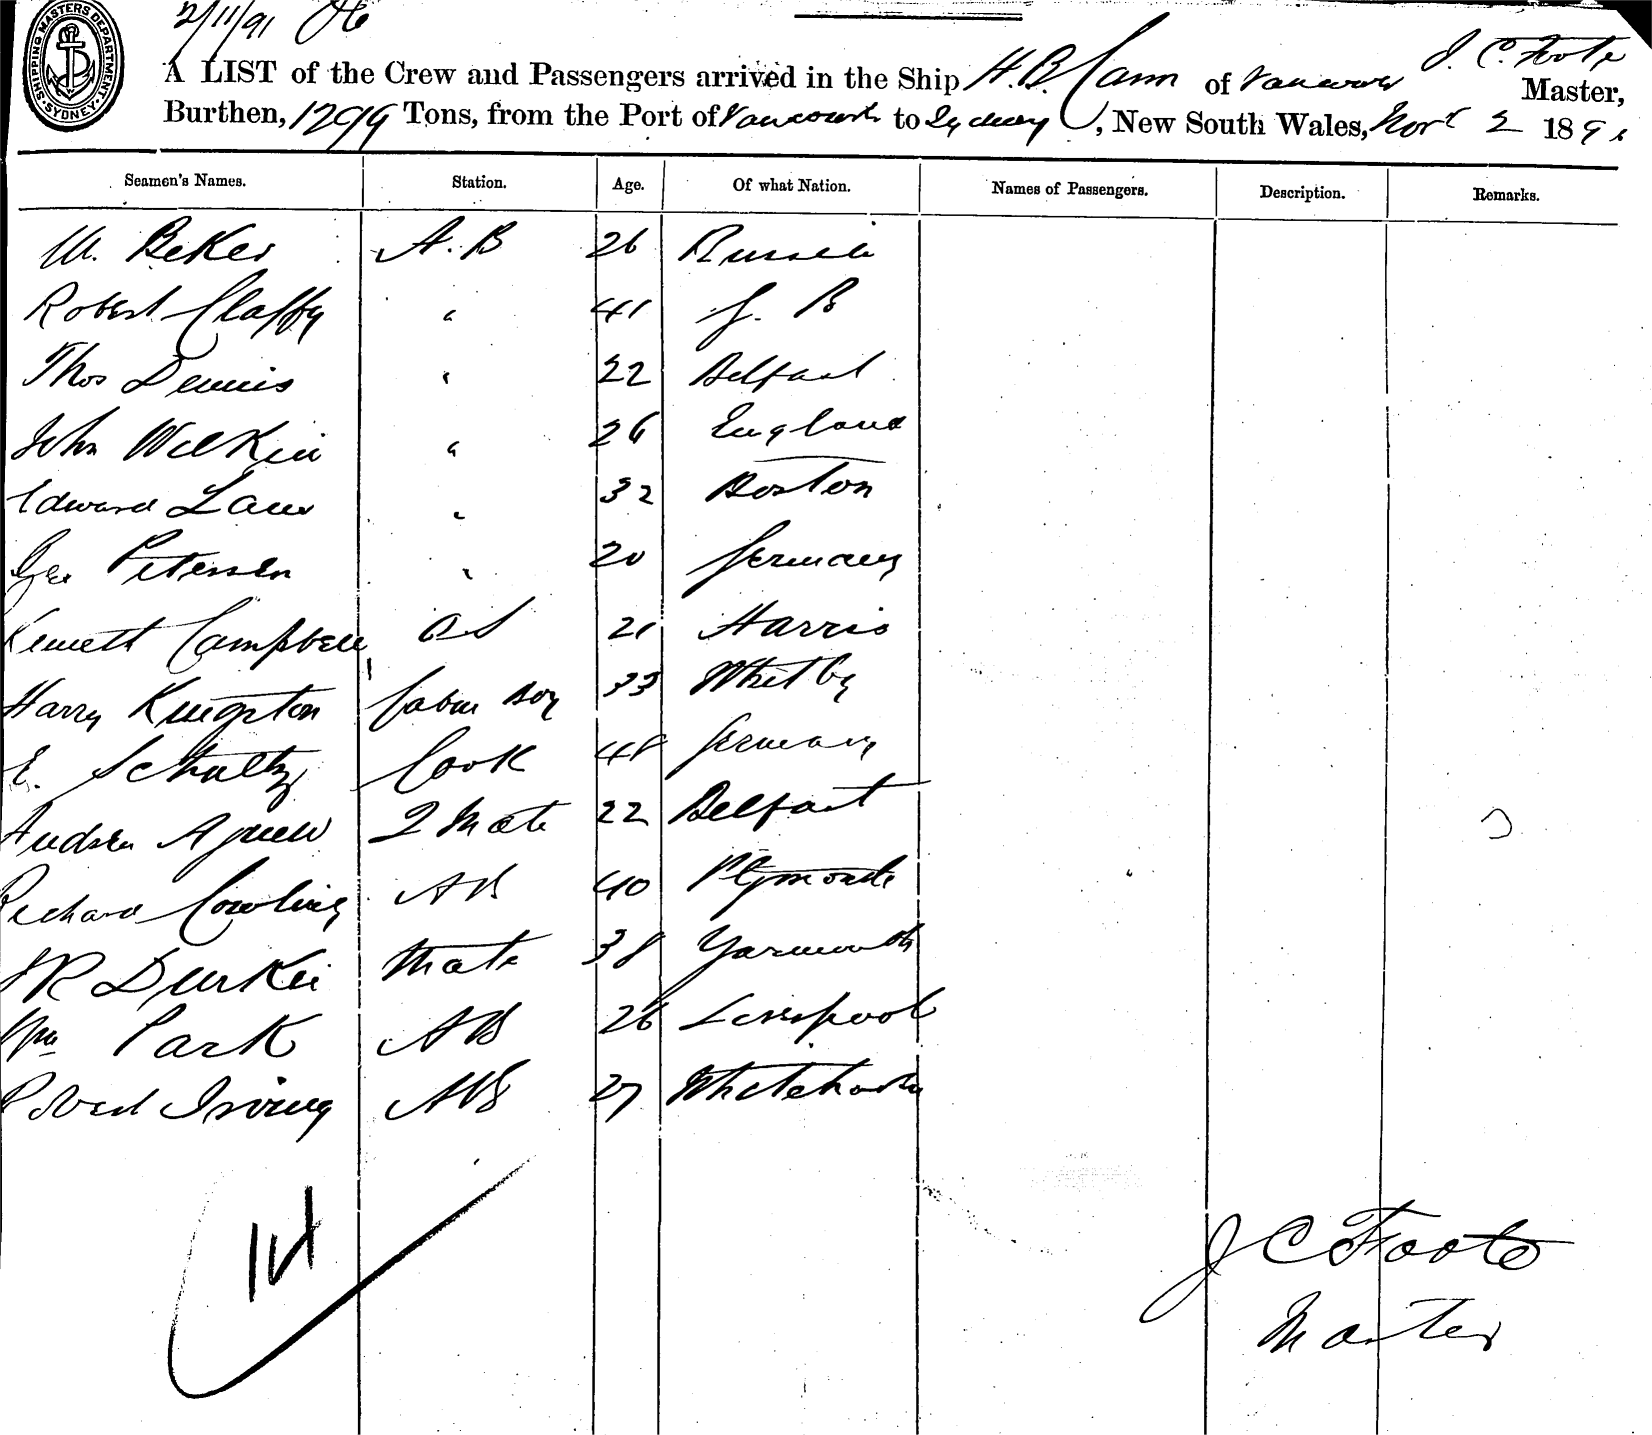 2/11/91
SHIPPING MASTERS DEPARTMENT SYDNEY
A LIST of the Crew and Passengers arrived in the Ship H. B. Cann of Vancouver J. C. Foote Master,
Burthen, 1299 Tons, from the Port of Vancouver to Sydney, New South Wales, Novr 2 1891
Seamen's Names. Station. Age. Of what Nation. Names of Passengers. Description. Remarks.
W. Beker A. B 26 Russia
Robert Claffy " 41 G. B
Thos Dennis " 22 Belfast
John Wilkin " 26 England
Edward Laws " 32 Boston
Geo Petersen " 20 Germany
Kennett Campbell OS 21 Harris
Harry Kingston Cabin Boy 33 Whitby
E. Schultz Cook 48 Germany
Andrew Agnew 2 Mate 22 Belfast
Richard Cowling AB 40 Plymouth
JR Durkee Mate 38 Yarmouth
Wm Park AB 26 Liverpool
Robert Irving AB 27 Whitehaven
14
J C Foote
Master